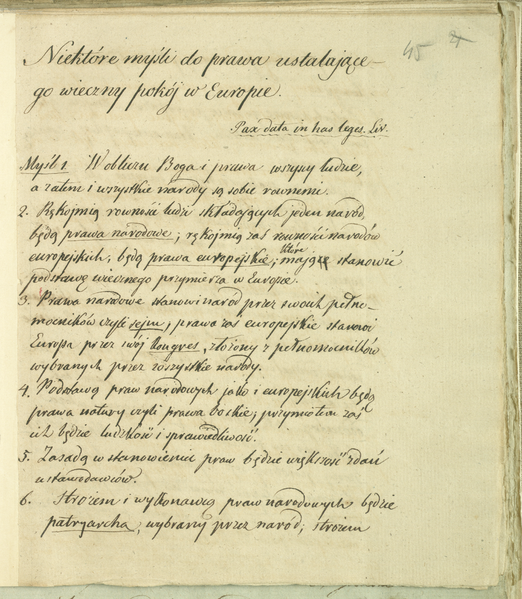 45
Niektóre myśli do prawa ustalające-
go wieczny pokój w Europie.
Pax data in has leges. Liv.
Myśl 1. W obliczu Boga i prawa wszyscy ludzie,
a zatem i wszystkie narody są sobie równemi.
2. Rękojmią równość ludzi składających jeden naród,
będą prawa narodowe; rękojmią zaś równości narodów
europejskich, będą prawa europejskie; które mają stanowić
podstawę wiecznego przymierza w Europie.
3. Prawa narodowe stanowi naród przez swoich pełno-
mocników czyli sejm; prawa zaś europejskie stanowi
Europa przez swój kongres, złożony z pełnomocników
wybranych przez wszystkie narody.
4. Podstawą praw narodowych jako i europejskich będą
prawa natury czyli prawa boskie; przymiotem zaś
ich będzie ludzkość i sprawiedliwość.
5. Zasadą w stanowieniu praw będzie większość zdań
ustawodawców.
6. Stróżem i wykonawcą praw narodowych będzie
patryarcha, wybrany przez naród; stróżem